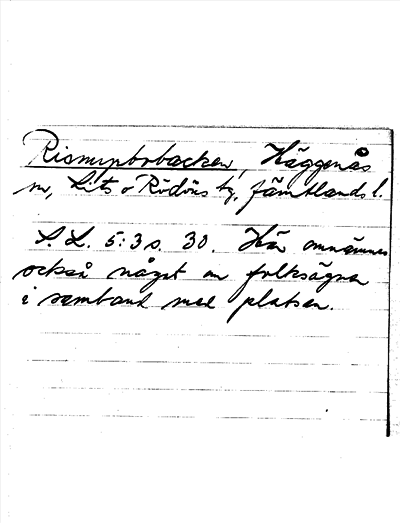 Rismyrbobacken, Häggenås
sn, Lits o Rödöns tg, Jämtlands l.
S. L. 5:3 s. 30. Här omnämnes
också något om folksägnen
i samband med platsen.